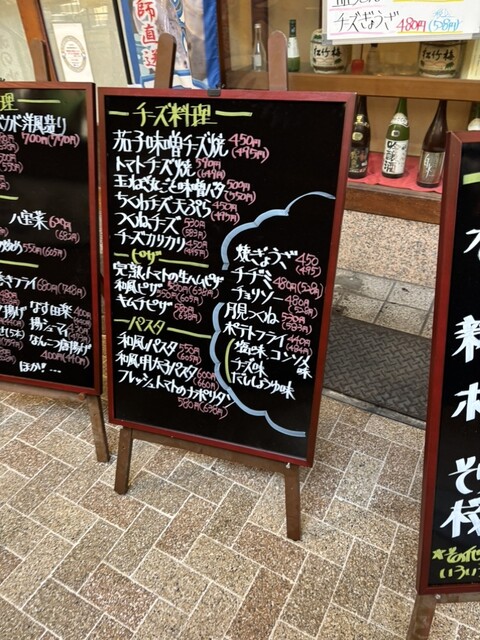 師直送
チーズぎょうざ 480円(528円)
松竹梅
チーズ料理
茄子味噌チーズ焼 450円(495円)
トマトチーズ焼 590円(649円)
ちくわチーズ天ぷら 450円(495円)
つくねチーズ 530円(583円)
チーズカリカリ 450円(495円)
ピザ
完熟トマトの生ハムピザ
和風ピザ 580円(638円)
キムチピザ
パスタ
和風パスタ 550円(605円)
和風明太パスタ 600円(660円)
フレッシュトマトのナポリタン 580円(638円)
焼ぎょうざ 450(495)
チヂミ 480円(528円)
チョリソー 480円(528)
月見つくね 530円(583円)
ポテトフライ 440円(484円)
塩味 コンソメ味
チーズ味
だしじょうゆ味
理
洋風造り
700円(770円)
八宝菜 620円(682円)
炒め 550円(605)
フライ 680円(748円)
なす田楽 400円(440円)
揚シューマイ
なんこつ唐揚げ 400円(440円)
ほか!…